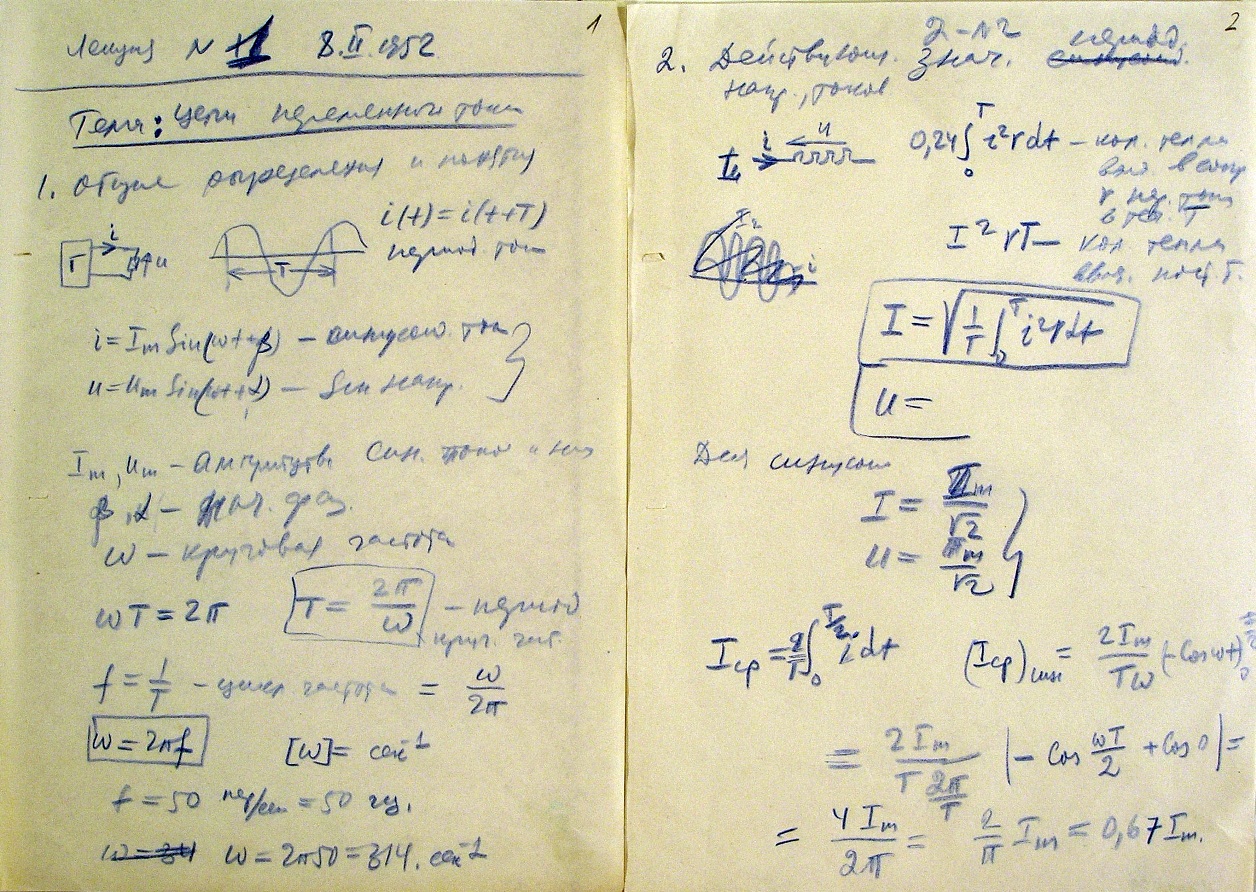 1
Лекция N 1 8.II.1952
Тема: Цепи переменного тока
1. Общие определения и понятия
i(t)=i(t+T)
период. ток
Г i u
T
i = Im Sin(ωt+β) — синусоид. ток
u = Um Sin(ωt+α) — Sin напр.
Im, Um — амплитуды син. тока и нап
β, α — нач. фаз.
ω — круговая частота
ωT = 2π T = 2π/ω — период
круг. част.
f = 1/T — цикл. частота = ω/2π
ω = 2πf [ω] = сек⁻¹
f = 50 пер/сек = 50 гц.
ω = 2π50 = 314. сек⁻¹
2
2-N2
2. Действующ. знач. период.
напр., токов
i u 0,24 ∫₀ᵀ i²rdt — кол. тепла
выд. в сопр
r пер. током
в теч. T
I²rT — кол. тепла
пост. T.
I = √(1/T ∫₀ᵀ i²dt)
U =
Для синусоид
I = Im/√2
U = Um/√2
Iср = 2/T ∫₀^(T/2) i dt (Iср)син = 2Im/Tω (-Cos ωt)₀
= 2Im/(T 2π/T) |- Cos ωT/2 + Cos 0| =
= 4Im/2π = 2/π Im = 0,67 Im.